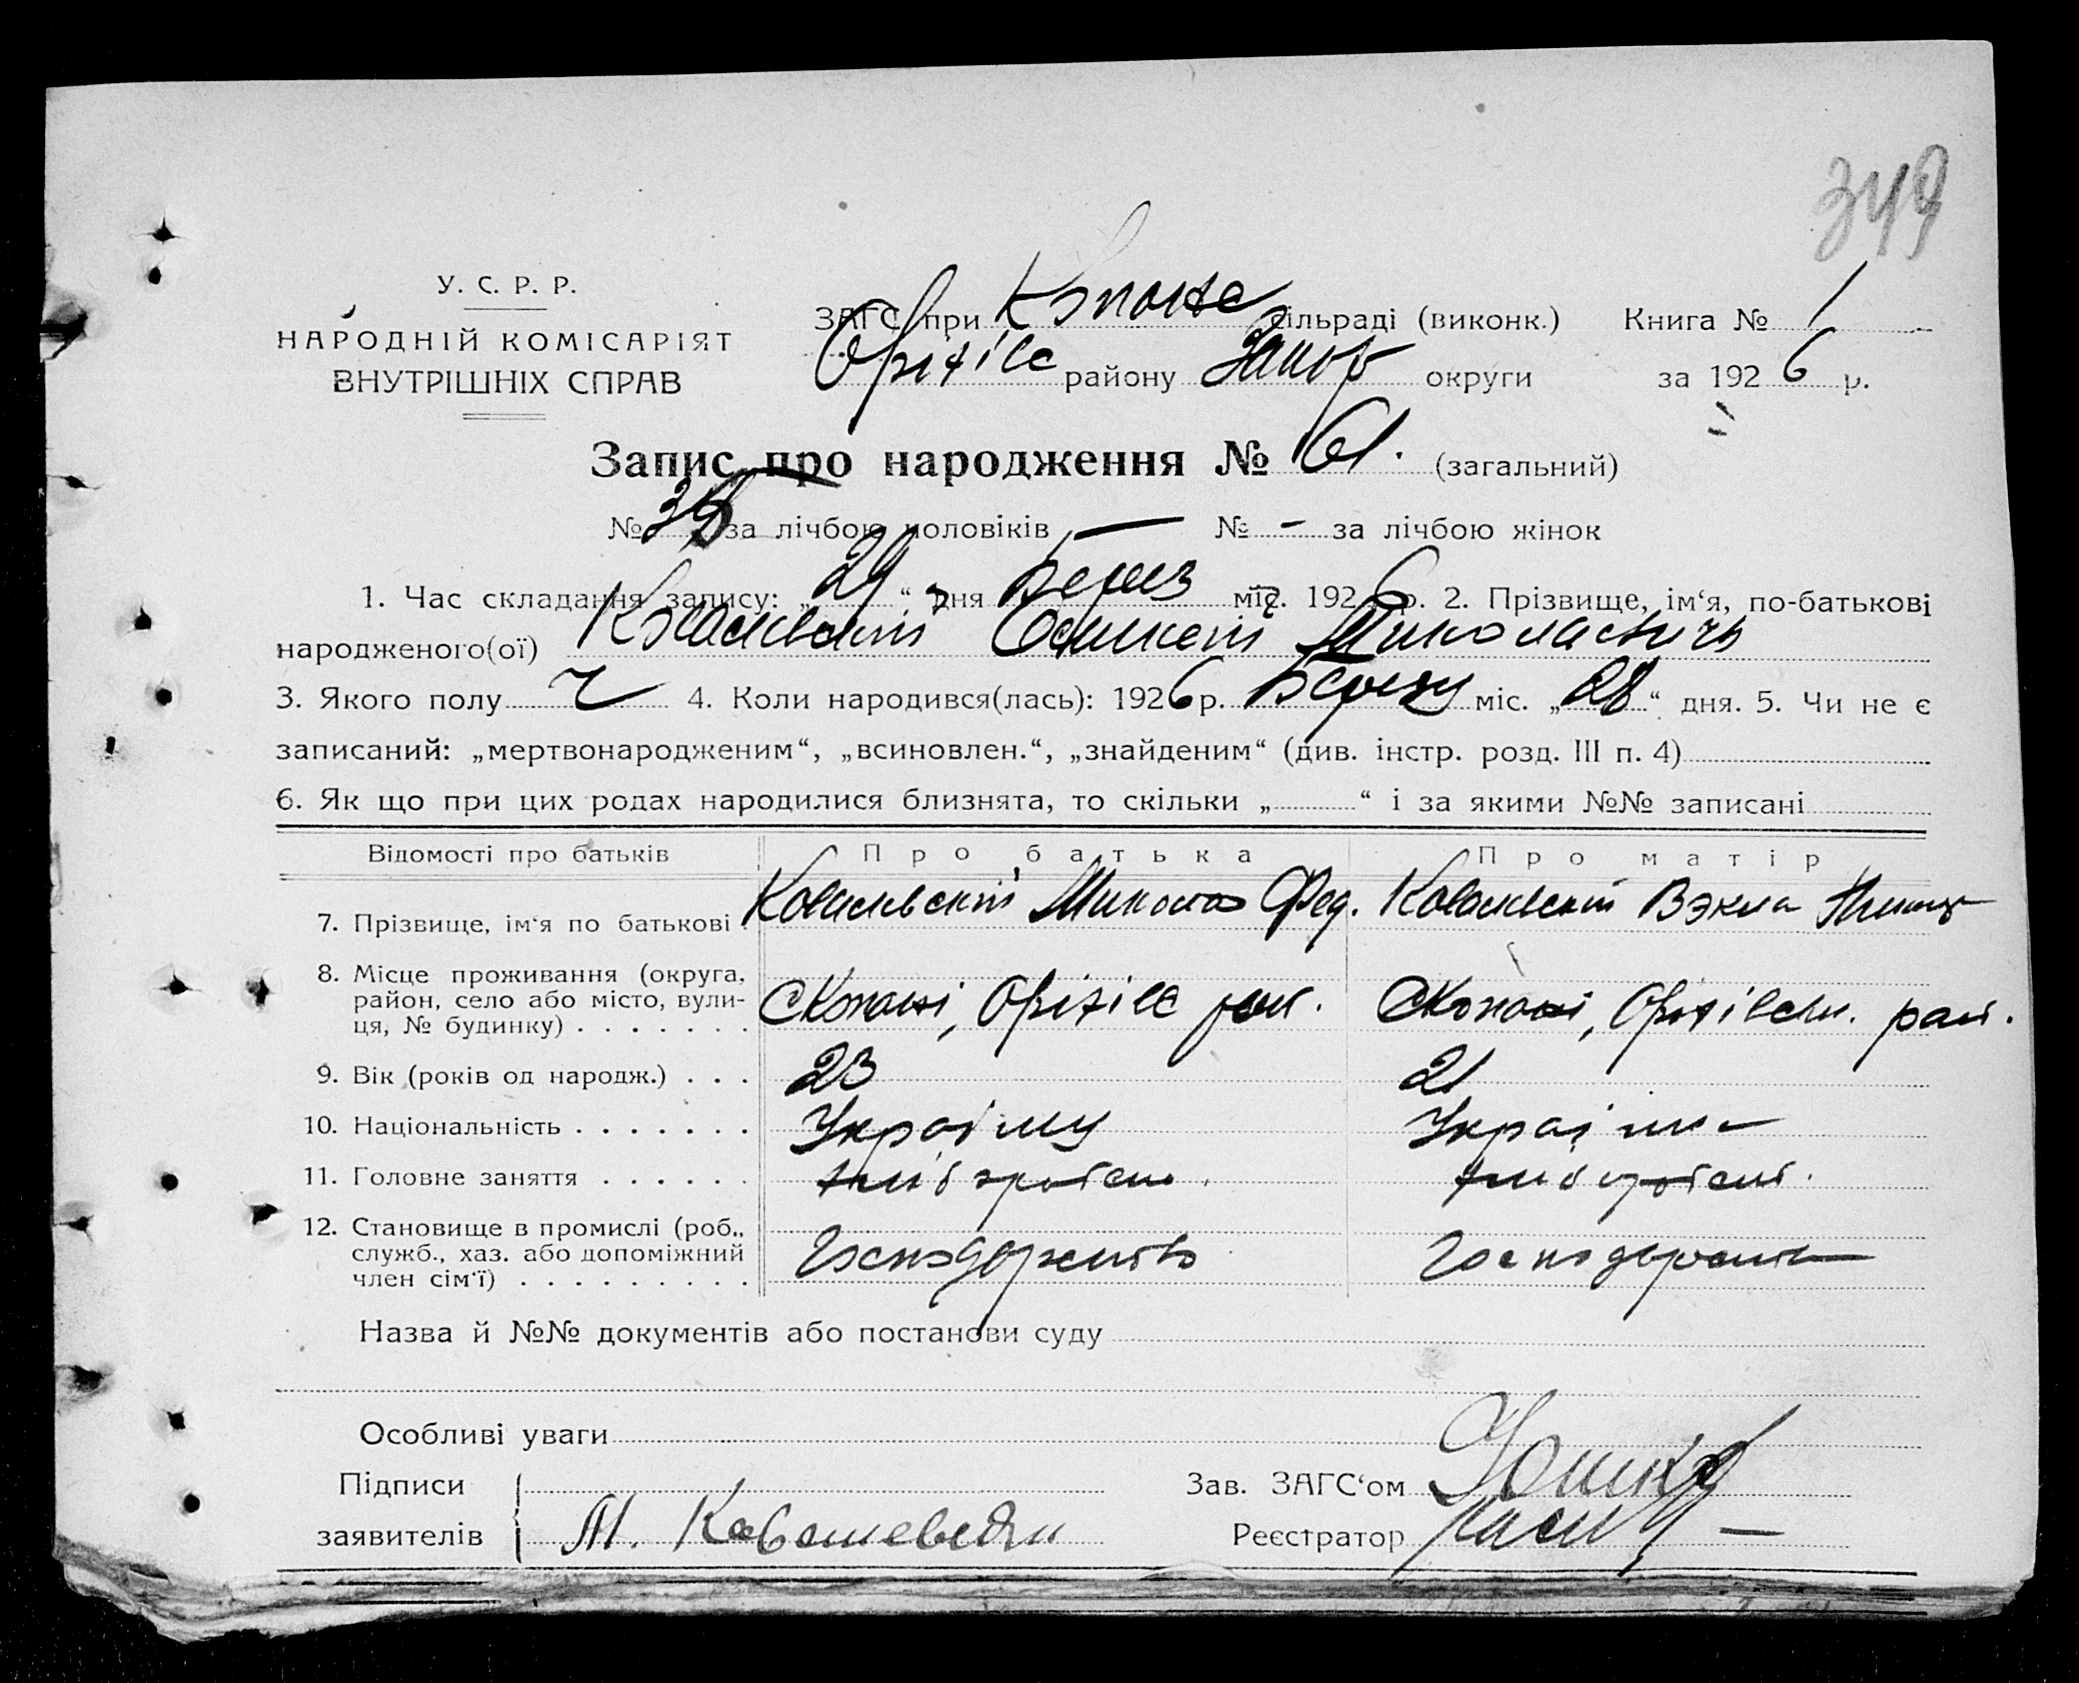 349
У. С. Р. Р.
НАРОДНІЙ КОМІСАРІЯТ
ВНУТРІШНІХ СПРАВ
ЗАГС при сільраді (виконк.) Книга № 1
Оріхівс району Запор округи за 1926 р.
Запис про народження № 61. (загальний)
№ за лічбою чоловіків — № – за лічбою жінок
1. Час складання запису: „29“ дня Берез міс. 1926 р. 2. Прізвище, ім‘я, по-батькові
народженого(ої) Ковалевский Миколаевичь
3. Якого полу ч 4. Коли народився(лась): 1926 р. Березу міс. „28“ дня. 5. Чи не є
записаний: „мертвонародженим“, „всиновлен.“, „знайденим“ (див. інстр. розд. III п. 4)
6. Як що при цих родах народилися близнята, то скільки „ “ і за якими №№ записані
Відомості про батьків Про батька Про матір
7. Прізвище, ім‘я по батькові Ковалевский Микола Фед. Ковалевский Вэкла
8. Місце проживання (округа,
район, село або місто, вули-
ця, № будинку) . . . . . . . Оріхівс рай. Оріхівськ. рай.
9. Вік (років од народж.) . . . 23 21
10. Національність . . . . . . . Українц Українка
11. Головне заняття . . . . . . хліборобст. хліборобст.
12. Становище в промислі (роб.,
служб., хаз. або допоміжний
член сім‘ї) . . . . . . . . . Господарство Господарство
Назва й №№ документів або постанови суду
Особливі уваги
Підписи
Зав. ЗАГС‘ом
заявителів М. Ковалевский
Реєстратор